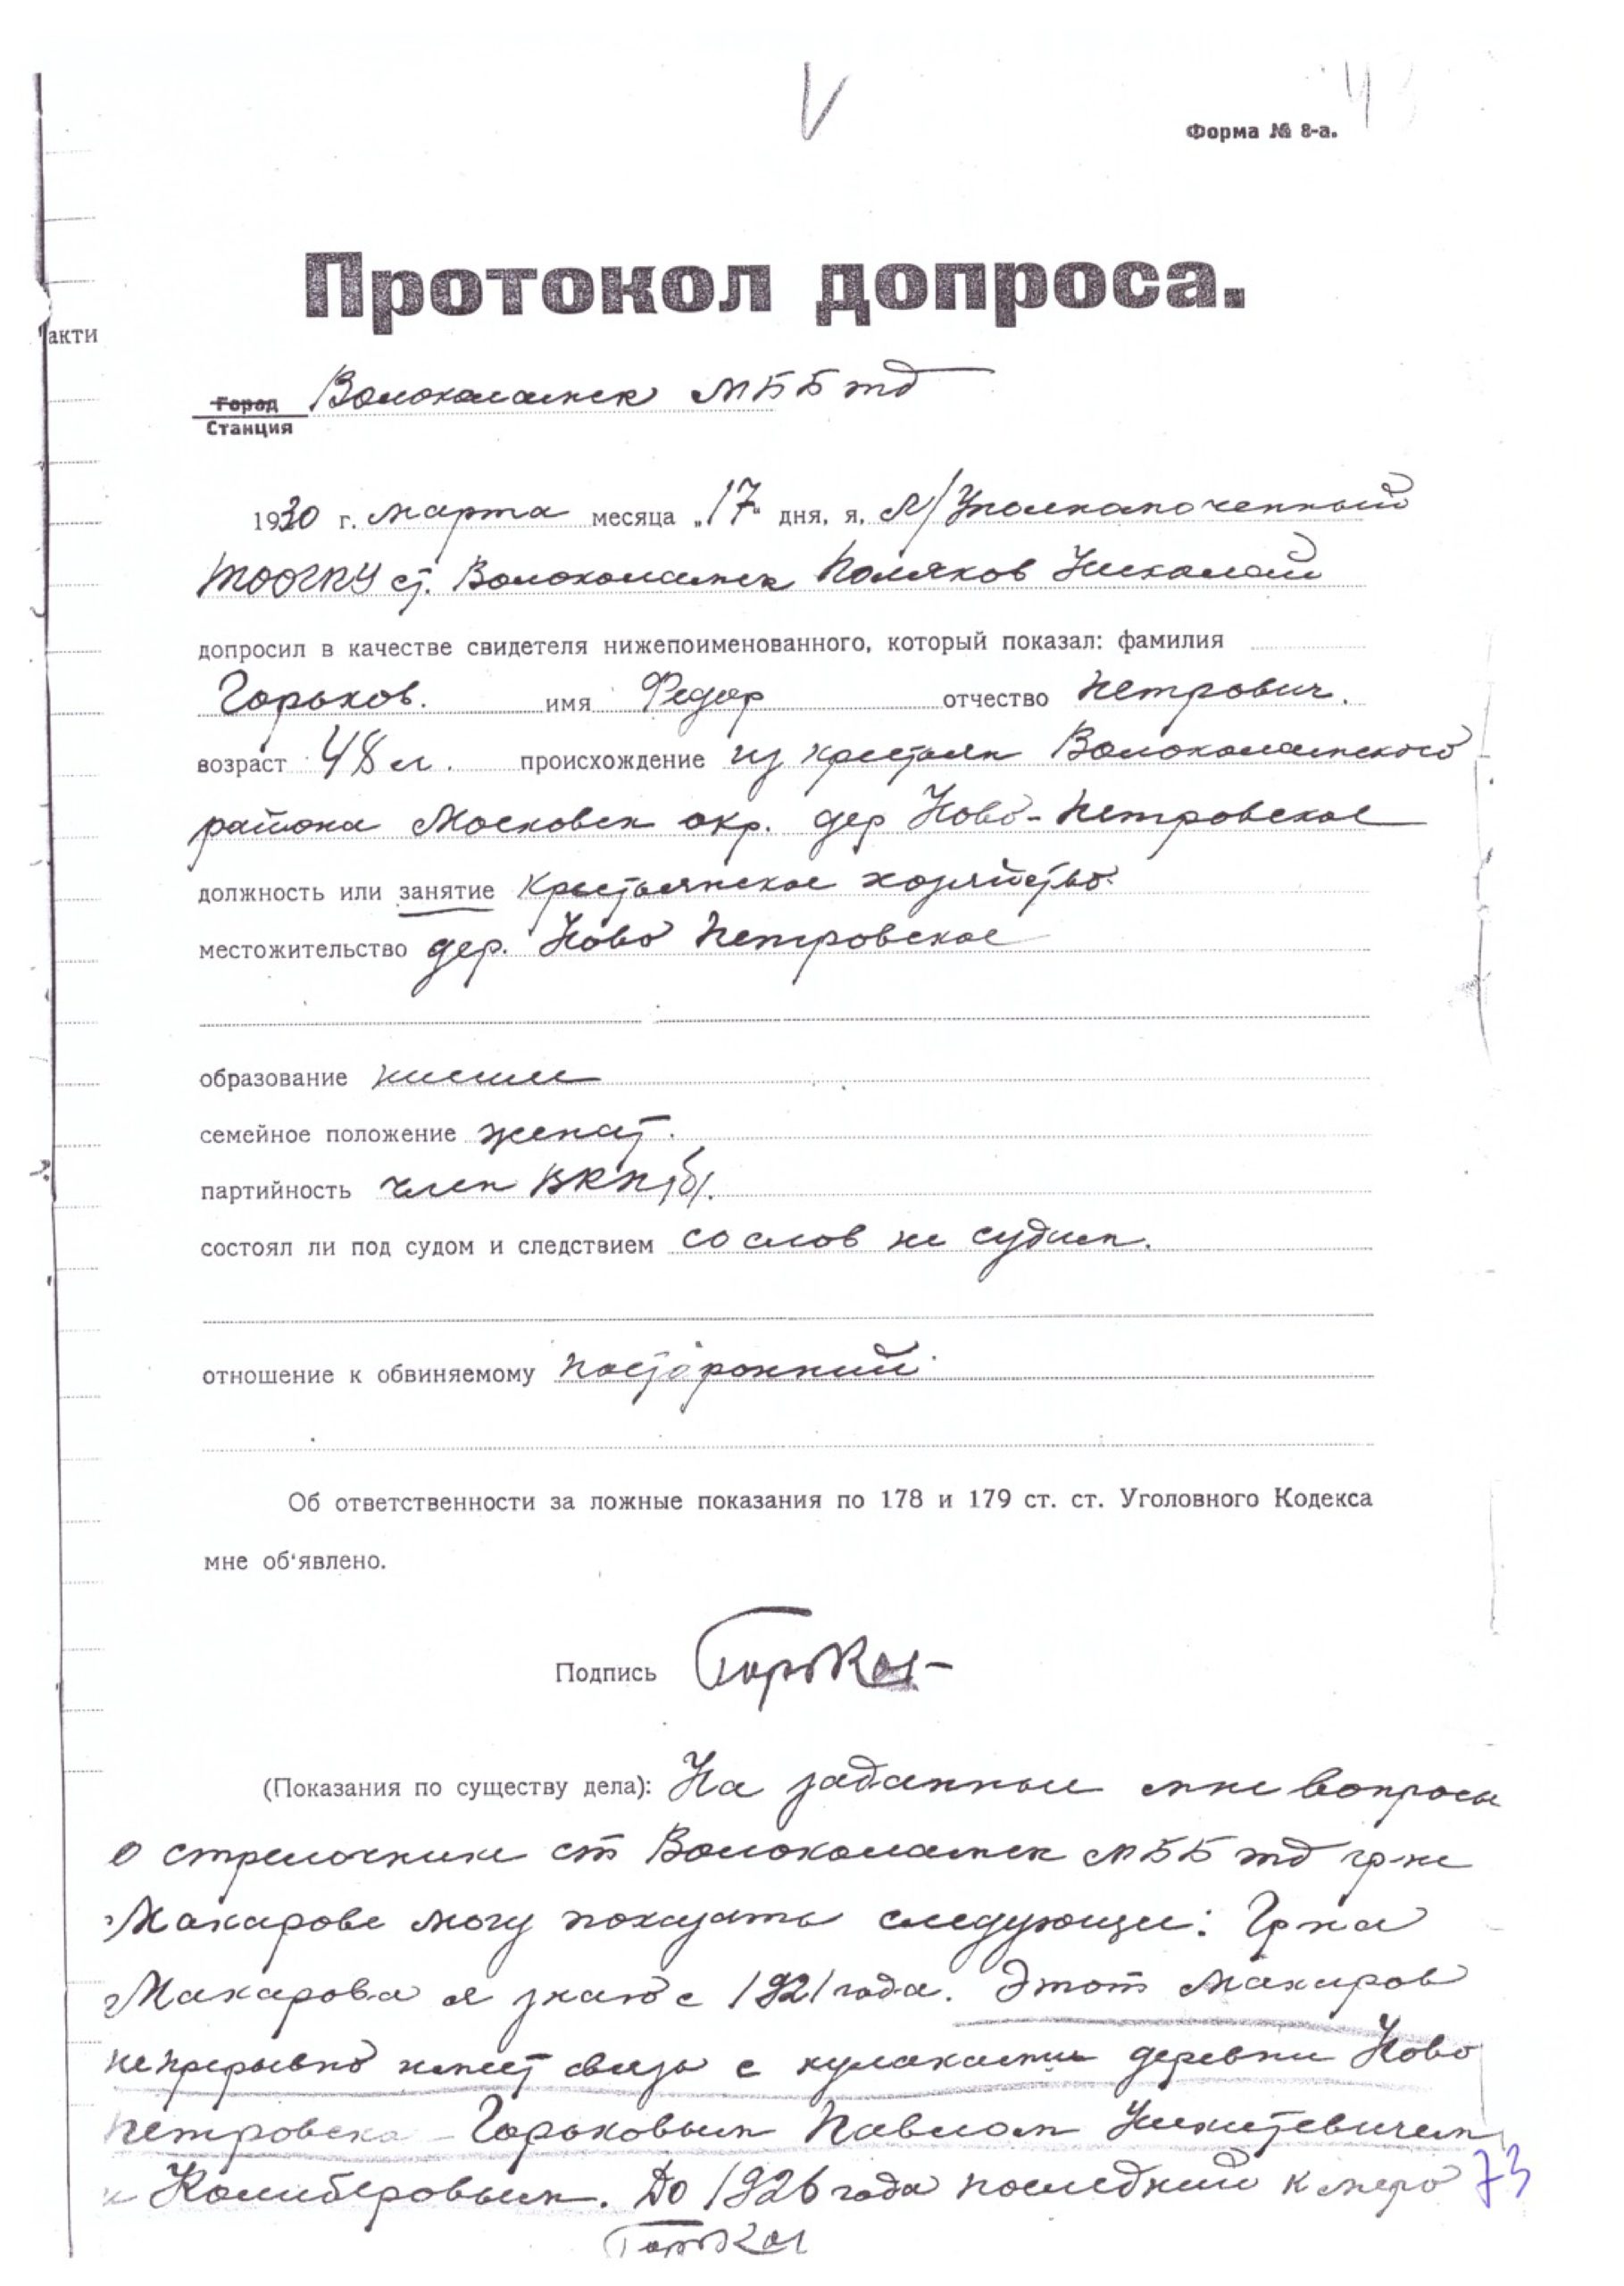 Форма № 8-а.
Протокол допроса.
акти
Город Волоколамск МББжд
Станция
1930 г. марта месяца „17“ дня, я, Уполномоченный
ТООГПУ ст. Волоколамск Поляков Николай
допросил в качестве свидетеля нижепоименованного, который показал: фамилия
Горьков. имя Федор отчество Петрович.
возраст 48 л. происхождение из крестьян Волоколамского
района Московск окр. дер Ново-Петровское
должность или занятие Крестьянское хозяйство.
местожительство дер. Ново Петровское
образование низшее
семейное положение женат.
партийность член ВКП/б/.
состоял ли под судом и следствием со слов не судим.
отношение к обвиняемому посторонний.
Об ответственности за ложные показания по 178 и 179 ст. ст. Уголовного Кодекса
мне об‘явлено.
Подпись Горьков
(Показания по существу дела): На заданные мне вопросы
о стрелочнике ст Волоколамск МББжд гр-не
Макарове могу показать следующее: Гр-на
Макарова я знаю с 1921 года. Этот Макаров
непрерывно имеет связь с кулаками деревни Ново
Петровска - Горьковым Павлом Никитевичем
и Калиберовым. До 1926 года последний к нему
73
Горьков